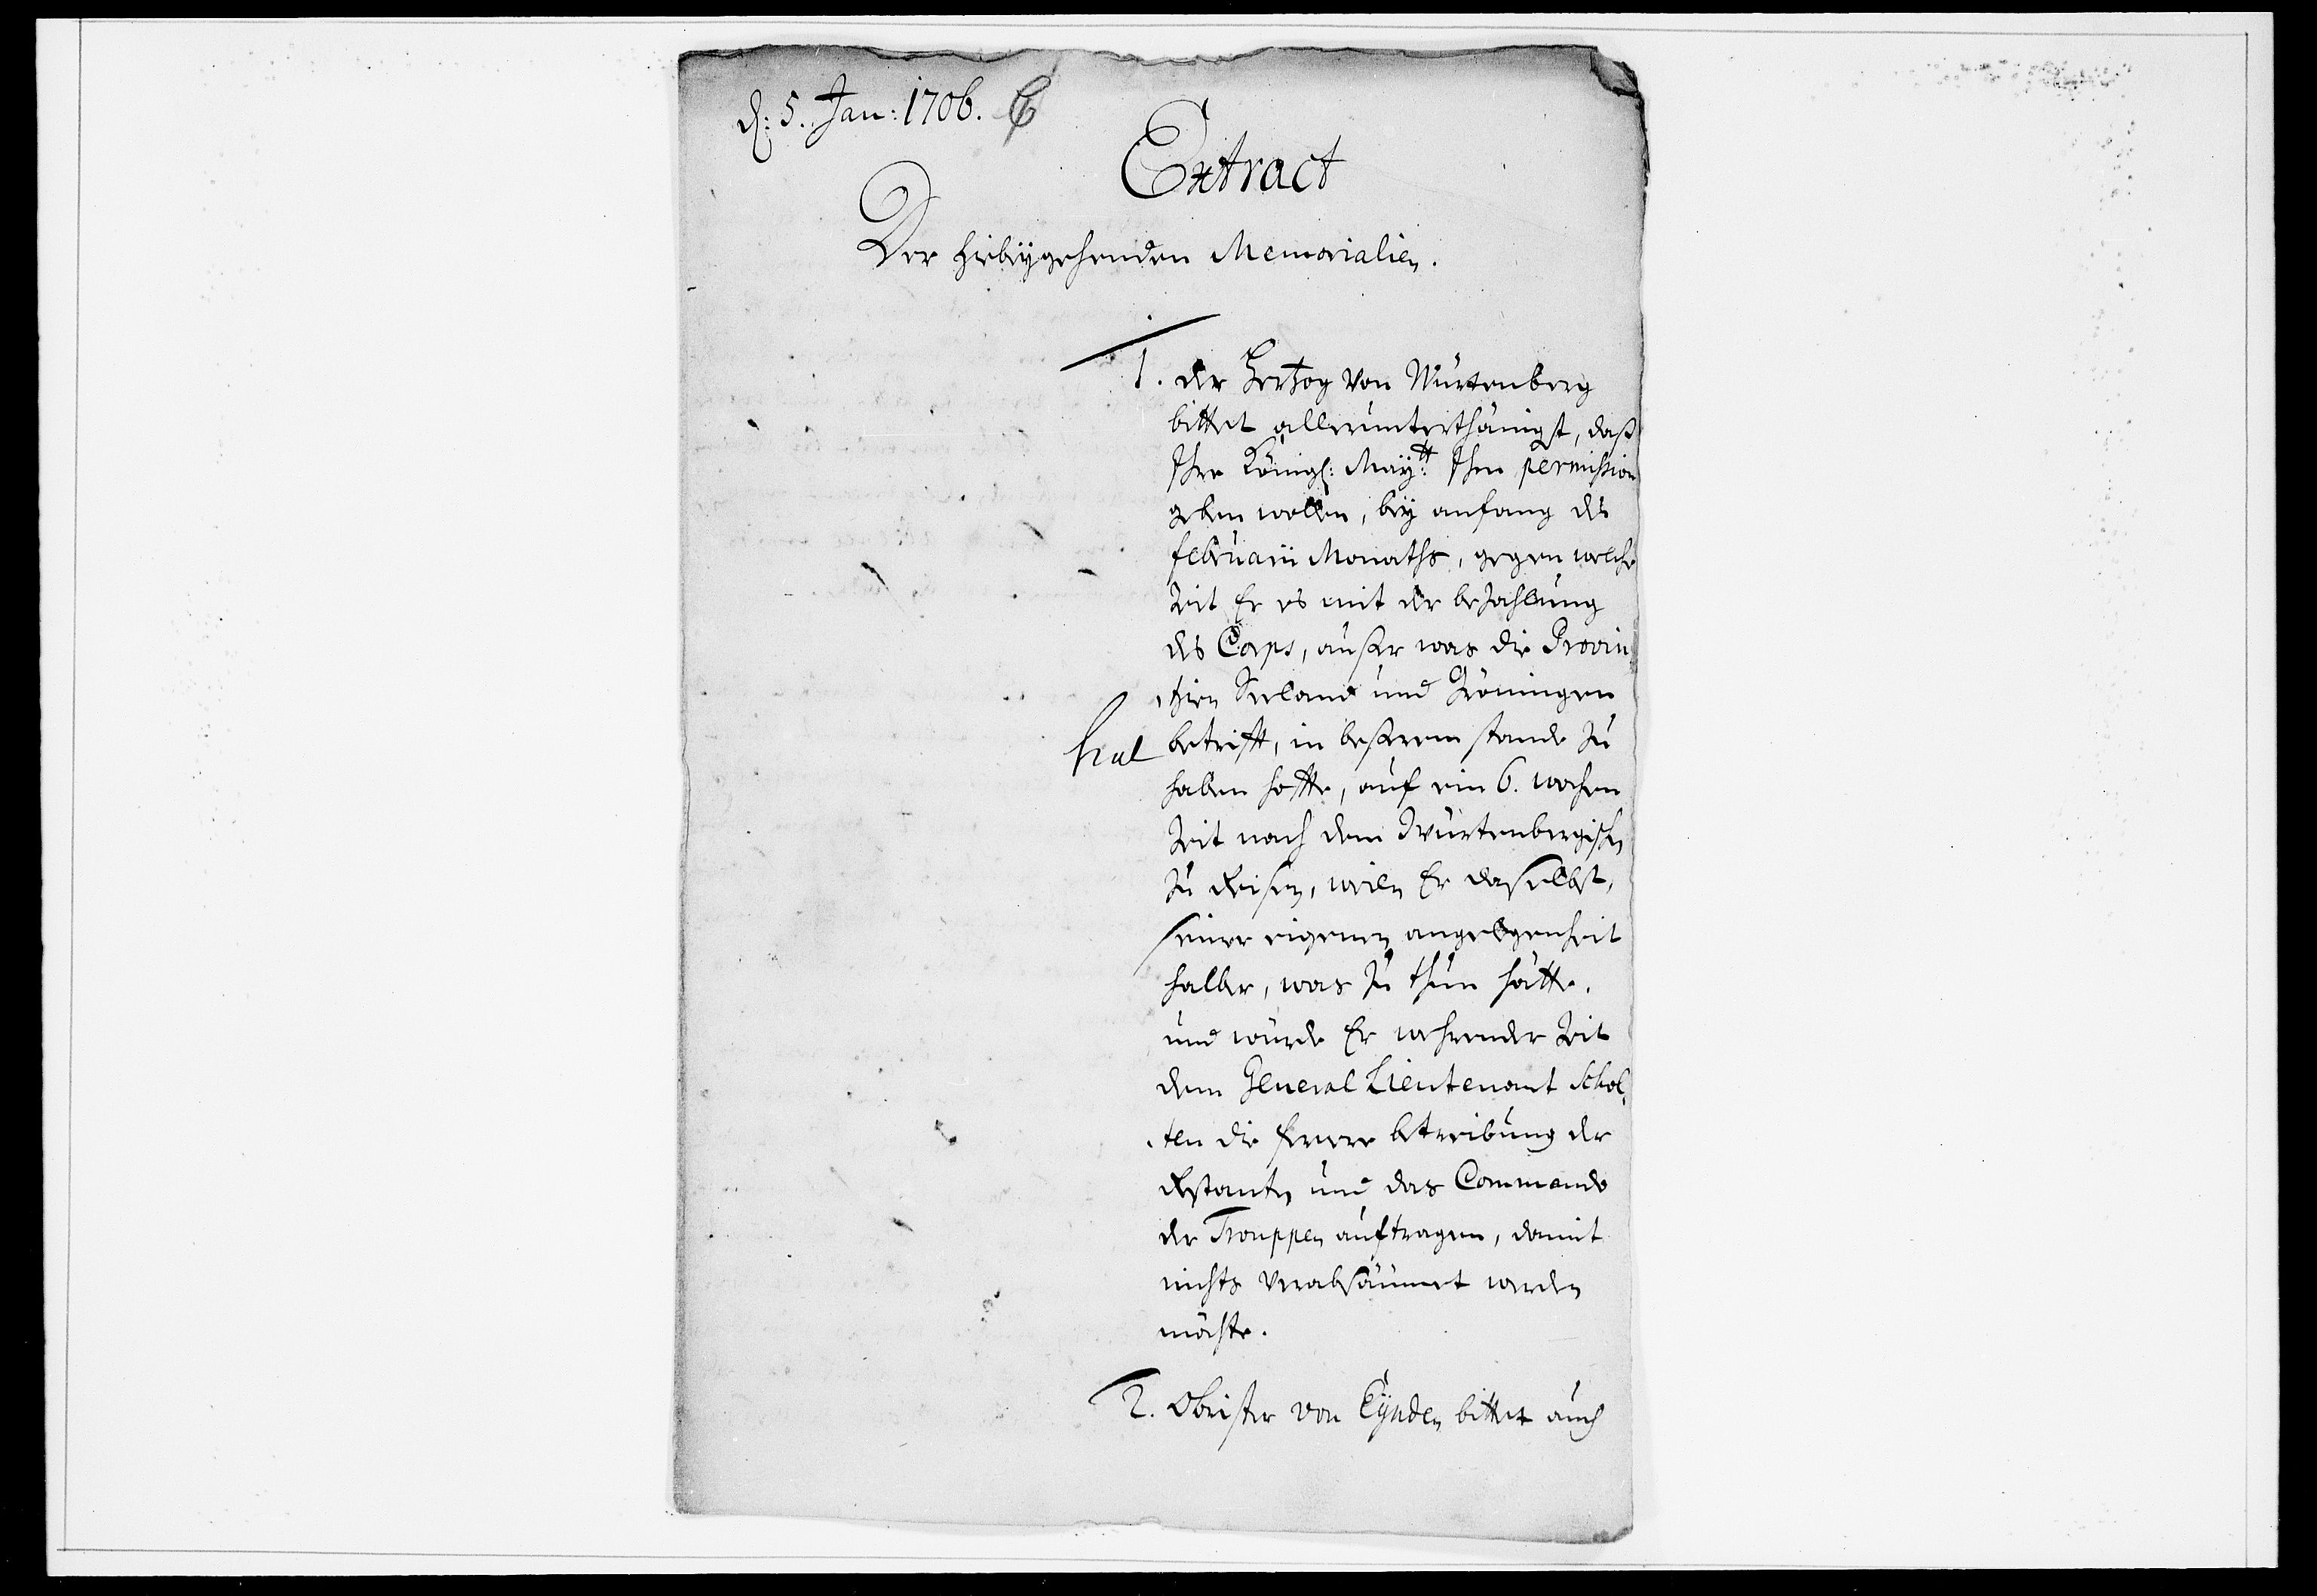 d: 5. Jan: 1706.
Extract
Der hiebeÿgehenden Memorialien.
1. der Hertzog von Würtenberg
bittet allerunterthänigst, daß
Ihre Königl: Maÿtt: Ihm permission
geben wollen, beÿ anfang des
februarii Monaths, gegen welche
Zeit Er es mit der bezahlung
des Corps, außer was die Provin
tzien Seeland und Gröningen
betrifft, in beßerem stande zu
haben hoffte, auf ein 6. wochen
Zeit nach dem Würtenbergischen
zu Reisen, weiln Er daselbst,
seiner eigenen angelegenheit
halber, was zu thun hätte.
und würde Er wehrender Zeit
dem General Lieutenant Schol,
ten die fernere betreibung der
Restanten und das Commando
der Trouppen auftragen, damit
nichts verabsäumet werden
möchte.
2. Obrister von Eÿnden bittet auch